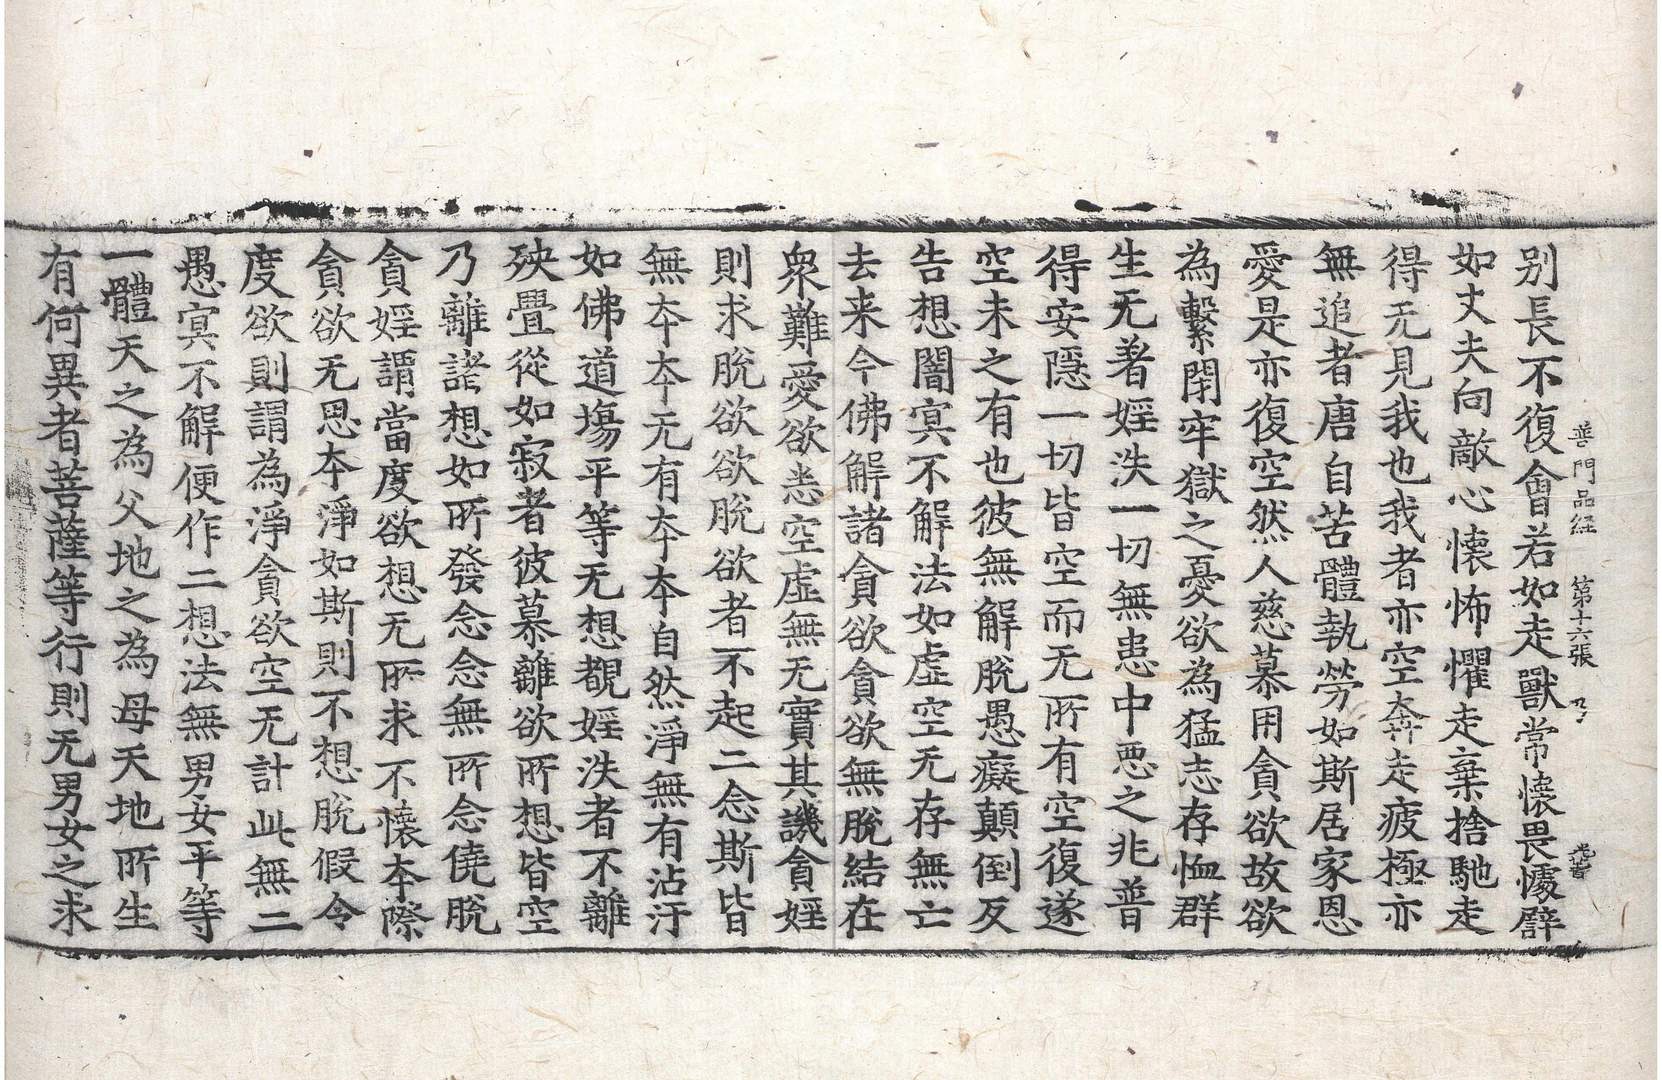 普門品経 第十六張
别長不復會若如走獸常懷畏懅譬
如丈夫向敵心懷怖懼走棄捨馳走
得无見我也我者亦空奔走疲極亦
無追者唐自苦體執勞如斯居家恩
愛是亦復空然人慈慕用貪欲故欲
為繫閉牢獄之憂欲為猛志存恤群
生无著婬泆一切無患中悪之兆普
得安隱一切皆空而无所有空復遂
空未之有也彼無解脫愚癡顛倒反
告想闇冥不解法如虛空无存無亡
去来今佛解諸貪欲貪欲無脫結在
衆難愛欲恚空虛無无實其譏貪婬
則求脫欲欲脫欲者不起二念斯皆
無夲夲无有夲夲自然淨無有沾汙
如佛道塲平等无想覩婬泆者不離
殃疊從如寂者彼慕離欲所想皆空
乃離諸想如所發念念無所念僥脫
貪婬謂當度欲想无所求不懷夲際
貪欲无思夲淨如斯則不想脫假令
度欲則謂為淨貪欲空无計此無二
愚冥不解便作二想法無男女平等
一體天之為父地之為母天地所生
有何異者菩薩等行則无男女之求